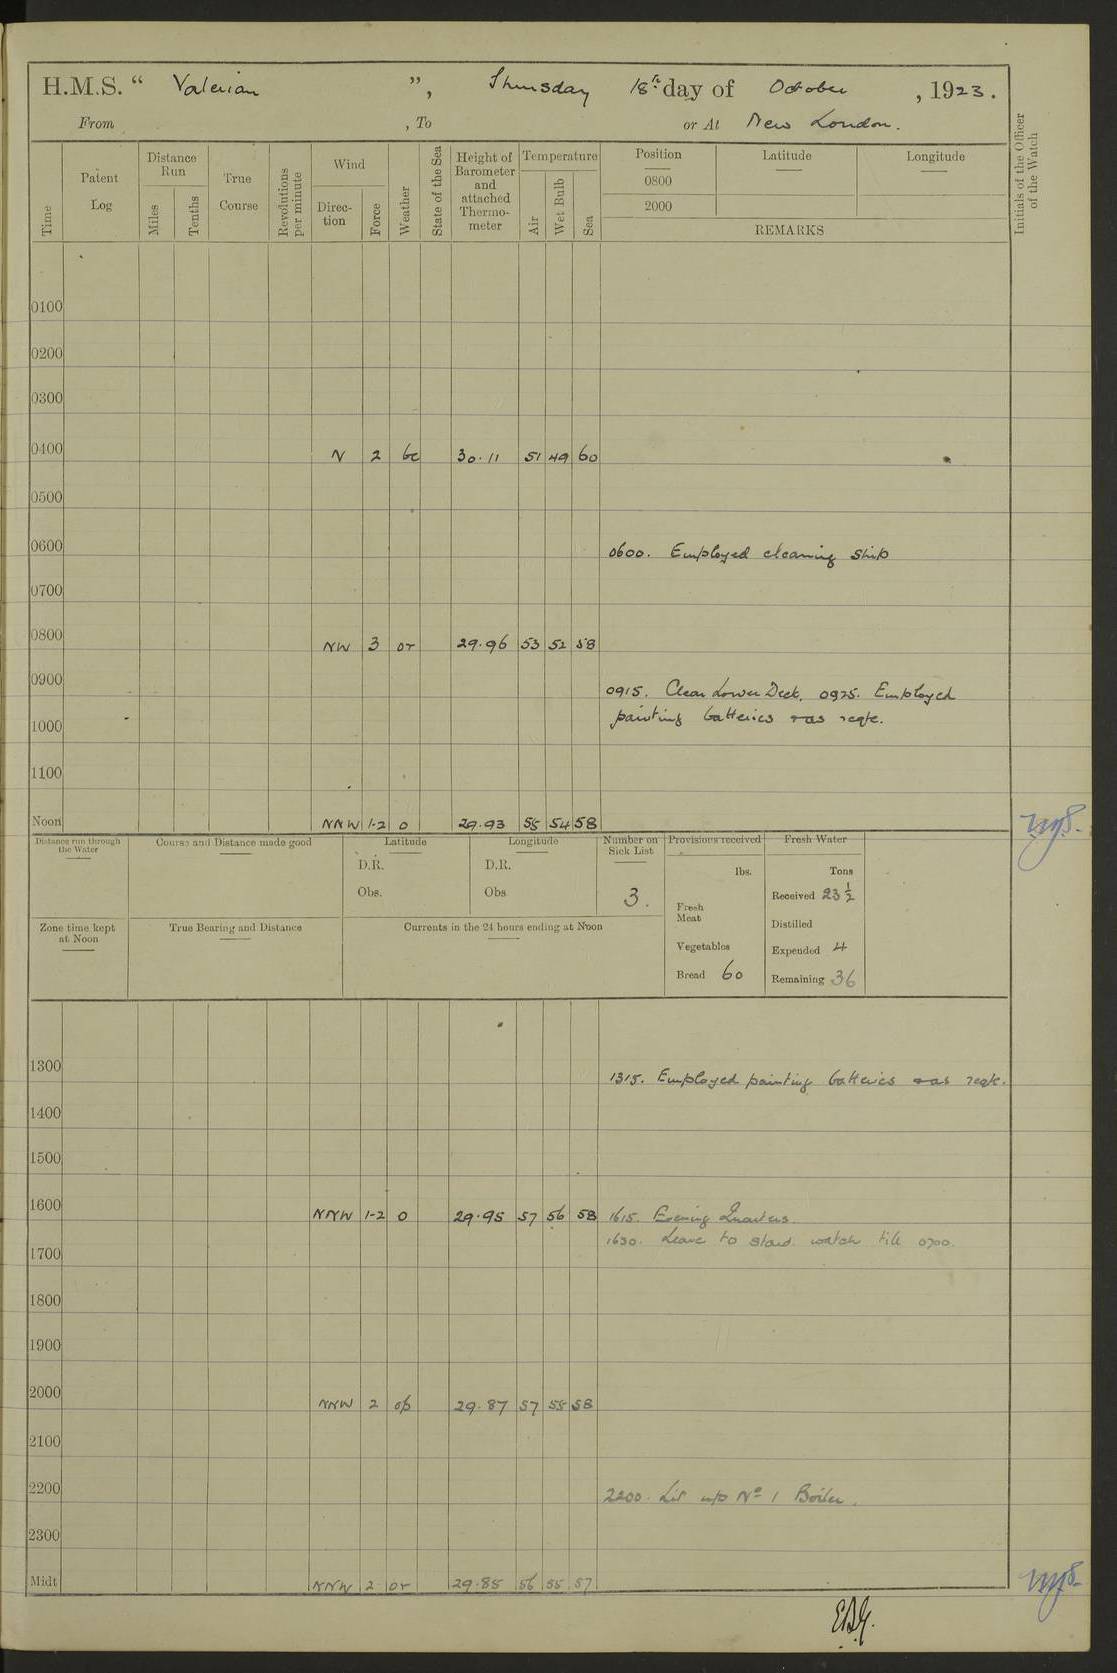 H.M.S. “ Valerian ”, Thursday 18th day of October , 1923.
From , To or At New London.
Time
Patent Log
Distance Run
Miles
Tenths
True Course
Revolutions per minute
Wind
Direc-tion
Force
Weather
State of the Sea
Height of Barometer and attached Thermo-meter
Temperature
Air
Wet Bulb
Sea
Position Latitude Longitude
0800
2000
REMARKS
Initials of the Officer of the Watch
0100
0200
0300
0400 N 2 bc 30.11 51 49 60
0500
0600 0600. Employed cleaning ship
0700
0800 NW 3 or 29.96 53 52 58
0900 0915. Clear Lower Deck. 0925. Employed
painting batteries & as reqte.
1000
1100
Noon NNW 1-2 0 29.93 55 54 58
Distance run through the Water
Course and Distance made good
Latitude
D.R.
Obs.
Longitude
D.R.
Obs
Number on Sick List
3.
Provisions received
lbs.
Fresh Meat
Vegetables
Bread 60
Fresh Water
Tons
Received 23 ½
Distilled
Expended 4
Remaining 36
Zone time kept at Noon
True Bearing and Distance
Currents in the 24 hours ending at Noon
1300 1315. Employed painting batteries & as reqte.
1400
1500
1600 NNW 1-2 0 29.95 57 56 58 1615. Evening Quarters.
1630. Leave to starb. watch till 0700.
1700
1800
1900
2000 NNW 2 op 29.87 57 55 58
2100
2200 2200. Lit up No 1 Boiler.
2300
Midt NNW 2 or 29.85 56 55 57